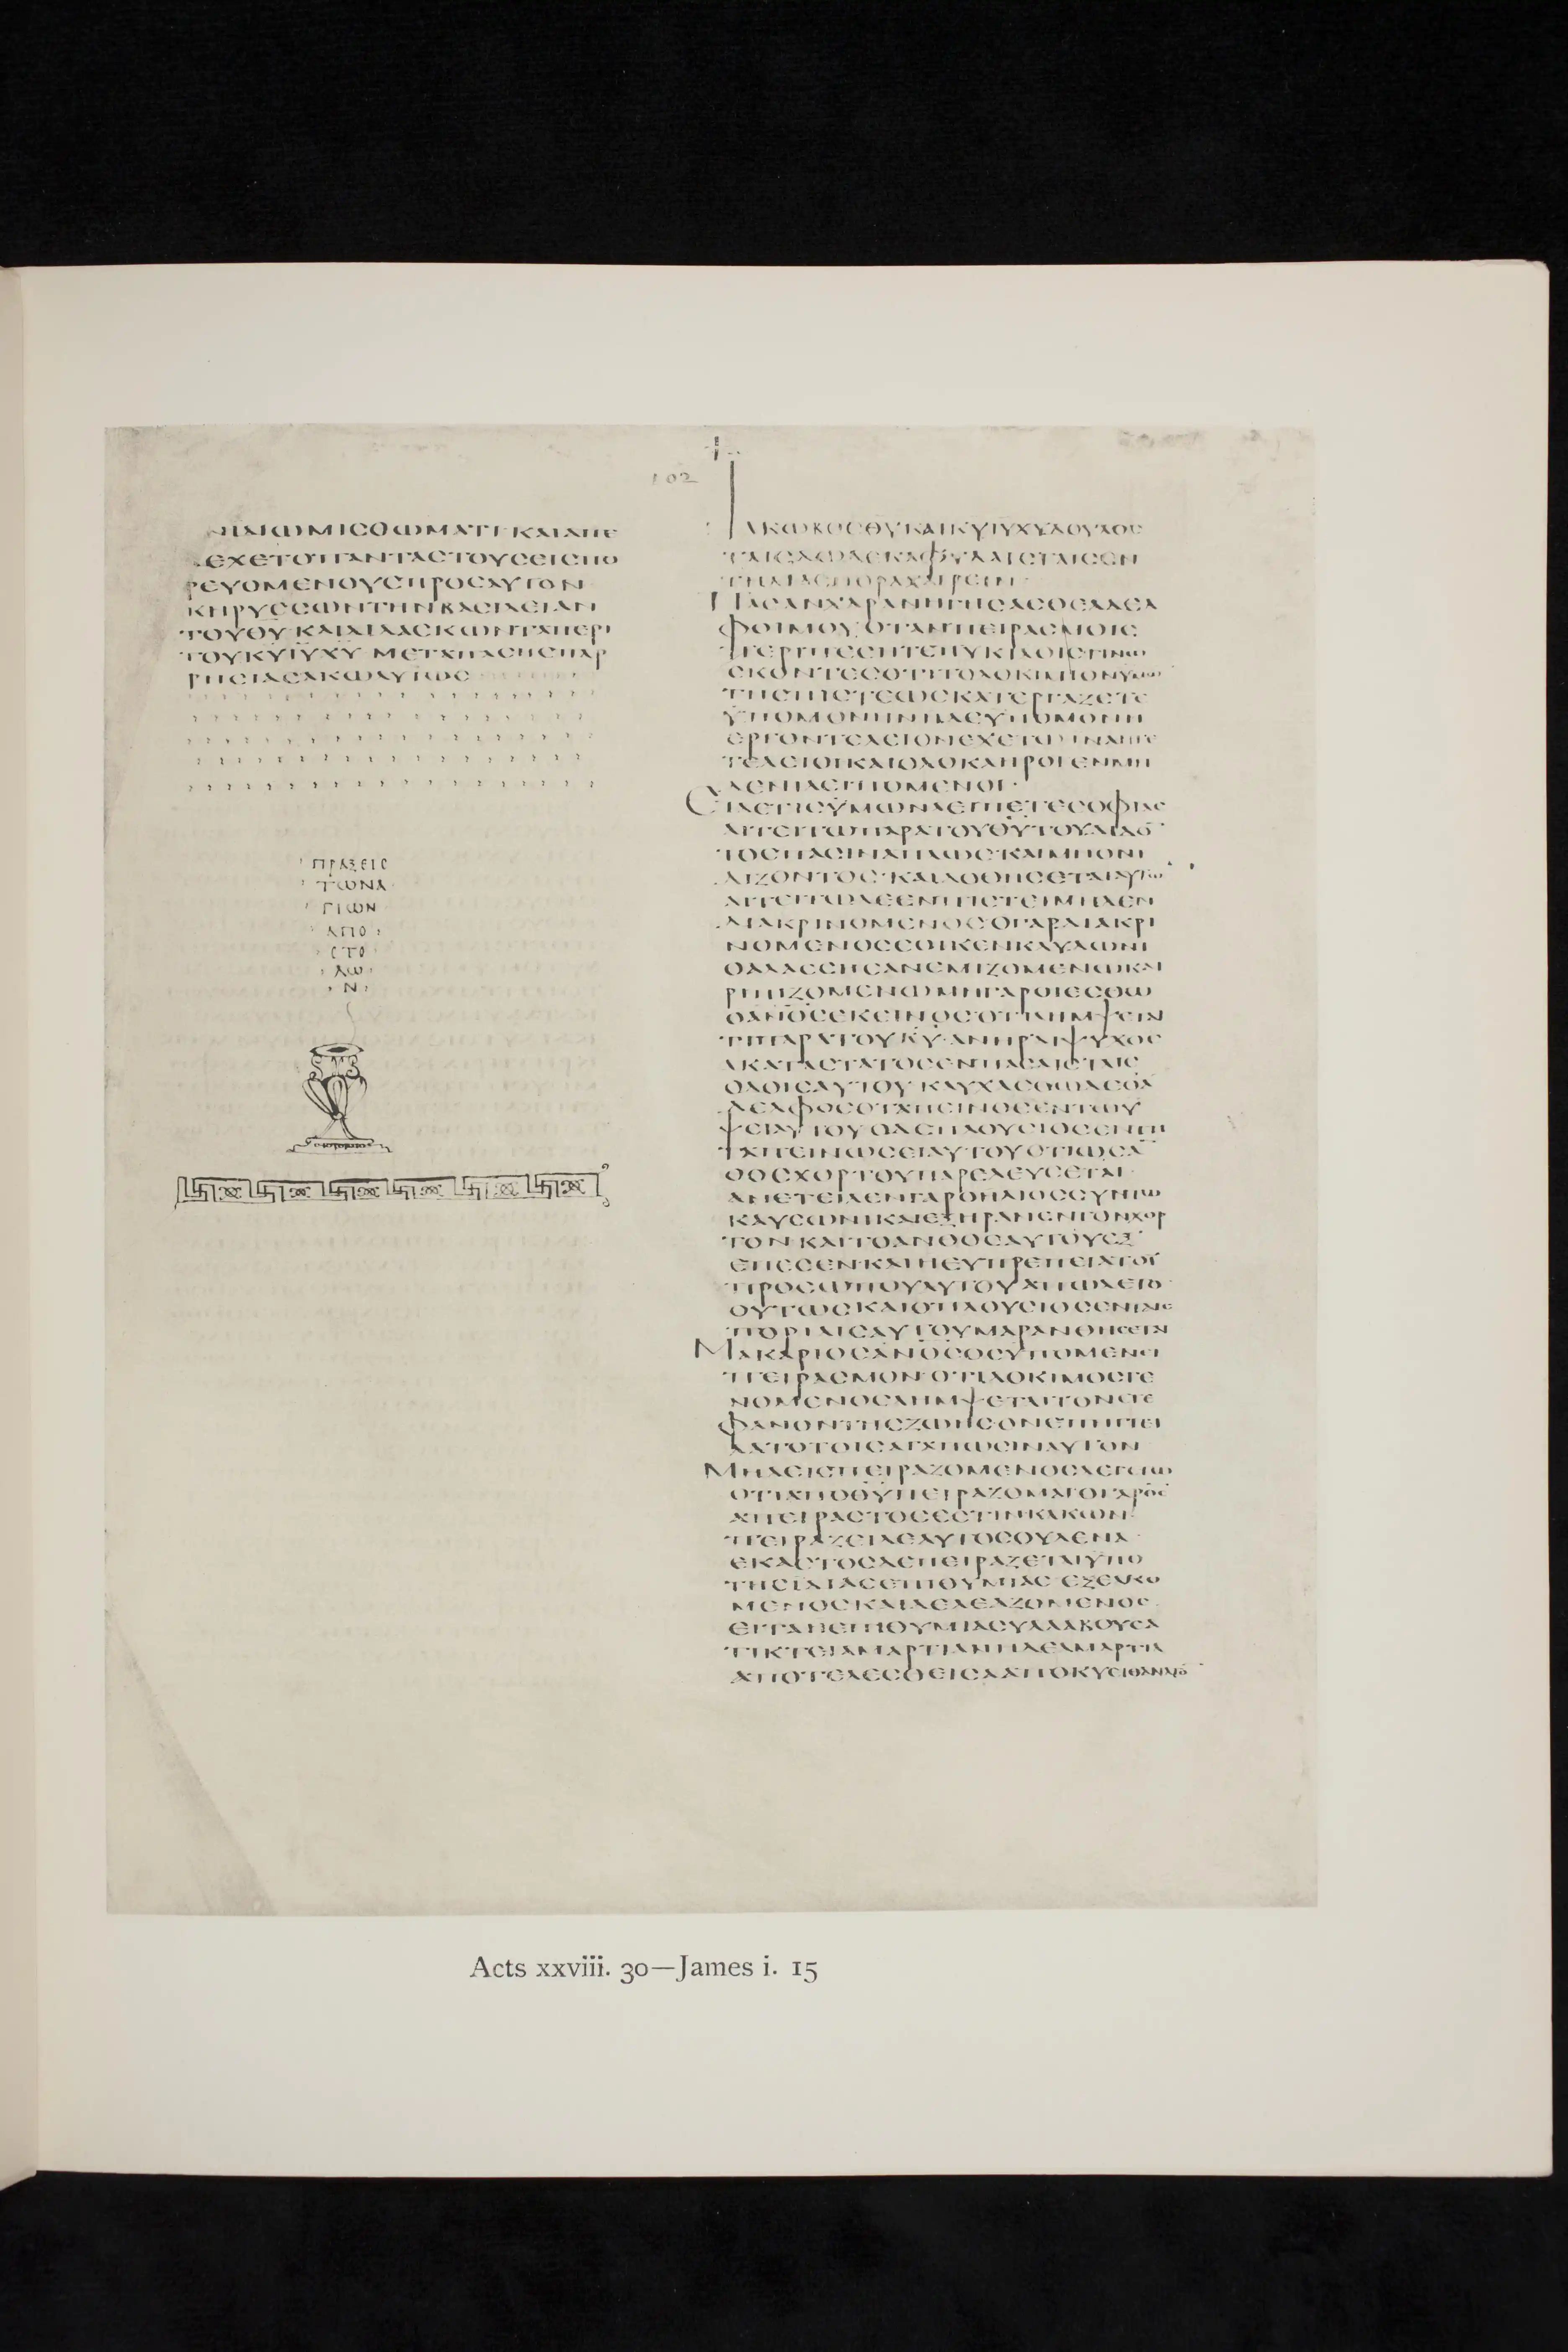 ΝΙΔΙΩΜΙCΘΩΜΑΤΙ ΚΑΙΑΠΕ
ΔΕΧΕΤΟΠΑΝΤΑCΤΟΥCΕΙCΠΟ
ΡΕΥΟΜΕΝΟΥCΠΡΟCΑΥΤΟΝ
ΚΗΡΥCCΩΝΤΗΝΒΑCΙΛΕΙΑΝ
ΤΟΥΘ̅Υ̅ ΚΑΙΔΙΔΑCΚΩΝΤΑΠΕΡΙ
ΤΟΥΚ̅Υ̅Ι̅Υ̅Χ̅Υ̅ ΜΕΤΑΠΑCΗCΠΑΡ
ΡΗCΙΑCΑΚΩΛΥΤΩC
ΠΡΑΞΕΙC
ΤΩΝΑ
ΓΙΩΝ
ΑΠΟ
CΤΟ
ΛΩ
Ν
102
ΙΑΚΩΒΟCΘ̅Υ̅ΚΑΙΚ̅Υ̅Ι̅Υ̅Χ̅Υ̅ΔΟΥΛΟC
ΤΑΙCΔΩΔΕΚΑΦΥΛΑΙCΤΑΙCΕΝ
ΤΗΔΙΑCΠΟΡΑΧΑΙΡΕΙΝ·
ΠΑCΑΝΧΑΡΑΝΗΓΗCΑCΘΕΑΔΕΛ
ΦΟΙΜΟΥ ΟΤΑΝΠΕΙΡΑCΜΟΙC
ΠΕΡΙΠΕCΗΤΕΠΥΚΙΛΟΙCΓΙΝΩ
CΚΟΝΤΕCΟΤΙΤΟΔΟΚΙΜΙΟΝΥΜΩ
ΤΗCΠΙCΤΕΩCΚΑΤΕΡΓΑΖΕΤΕ
ΫΠΟΜΟΝΗΝΗΔΕΥΠΟΜΟΝΗ
ΕΡΓΟΝΤΕΛΕΙΟΝΕΧΕΤΩ ΙΝΑΗΤΕ
ΤΕΛΕΙΟΙΚΑΙΟΛΟΚΛΗΡΟΙΕΝΜΗ
ΔΕΝΙΛΕΙΠΟΜΕΝΟΙ·
ΕΙΔΕΤΙCΫΜΩΝΛΕΙΠΕΤΕCΟΦΙΑC
ΑΙΤΕΙΤΩΠΑΡΑΤΟΥΘ̅Υ̅ΤΟΥΔΙΔΟ̅
ΤΟCΠΑCΙΝΑΠΛΩCΚΑΙΜΗΟΝΙ
ΔΙΖΟΝΤΟC ΚΑΙΔΟΘΗCΕΤΑΙΑΥΤΩ
ΑΙΤΕΙΤΩΔΕΕΝΠΙCΤΕΙΜΗΔΕΝ
ΔΙΑΚΡΙΝΟΜΕΝΟCΟΓΑΡΔΙΑΚΡΙ
ΝΟΜΕΝΟCΕΟΙΚΕΝΚΛΥΔΩΝΙ
ΘΑΛΑCCΗCΑΝΕΜΙΖΟΜΕΝΩΚΑΙ
ΡΙΠΙΖΟΜΕΝΩΜΗΓΑΡΟΙΕCΘΩ
ΟΑ̅Ν̅Ο̅C̅ΕΚΕΙΝΟCΟΤΙΛΗΜΨΕΤΑΙ
ΤΙΠΑΡΑΤΟΥΚ̅Υ̅ ΑΝΗΡΔΙΨΥΧΟC
ΑΚΑΤΑCΤΑΤΟCΕΝΠΑCΑΙCΤΑΙC
ΟΔΟΙCΑΥΤΟΥ ΚΑΥΧΑCΘΩΔΕΟΑ
ΔΕΛΦΟCΟΤΑΠΕΙΝΟCΕΝΤΩΥ
ΨΕΙΑΥΤΟΥ ΟΔΕΠΛΟΥCΙΟCΕΝΤΗ
ΤΑΠΕΙΝΩCΕΙΑΥΤΟΥΟΤΙΩCΑ̅
ΘΟCΧΟΡΤΟΥΠΑΡΕΛΕΥCΕΤΑΙ
ΑΝΕΤΕΙΛΕΝΓΑΡΟΗΛΙΟCCΥΝΤΩ
ΚΑΥCΩΝΙΚΑΙΕΞΗΡΑΝΕΝΤΟΝΧΟΡ
ΤΟΝ ΚΑΙΤΟΑΝΘΟCΑΥΤΟΥΕΞ
ΕΠΕCΕΝΚΑΙΗΕΥΠΡΕΠΕΙΑΤΟΥ
ΠΡΟCΩΠΟΥΑΥΤΟΥΑΠΩΛΕΤΟ
ΟΥΤΩCΚΑΙΟΠΛΟΥCΙΟCΕΝΤΑΙC
ΠΟΡΙΑΙCΑΥΤΟΥΜΑΡΑΝΘΗCΕΤΑΙ
ΜΑΚΑΡΙΟCΑ̅Ν̅Ο̅C̅ΟCΥΠΟΜΕΝΕΙ
ΠΕΙΡΑCΜΟΝ ΟΤΙΔΟΚΙΜΟCΓΕ
ΝΟΜΕΝΟCΛΗΜΨΕΤΑΙΤΟΝCΤΕ
ΦΑΝΟΝΤΗCΖΩΗCΟΝΕΠΗΓΓΕΙ
ΛΑΤΟΤΟΙCΑΓΑΠΩCΙΝΑΥΤΟΝ
ΜΗΔΕΙCΠΕΙΡΑΖΟΜΕΝΟCΛΕΓΕΤΩ
ΟΤΙΑΠΟΘ̅Υ̅ΠΕΙΡΑΖΟΜΑΙΟΓΑΡΘ̅C̅
ΑΠΕΙΡΑCΤΟCΕCΤΙΝΚΑΚΩΝ
ΠΕΙΡΑΖΕΙΔΕΑΥΤΟCΟΥΔΕΝΑ
ΕΚΑCΤΟCΔΕΠΕΙΡΑΖΕΤΑΙΫΠΟ
ΤΗCΙΔΙΑCΕΠΙΘΥΜΙΑC ΕΞΕΛΚΟ
ΜΕΝΟCΚΑΙΔΕΛΕΑΖΟΜΕΝΟC
ΕΙΤΑΗΕΠΙΘΥΜΙΑCΥΛΛΑΒΟΥCΑ
ΤΙΚΤΕΙΑΜΑΡΤΙΑΝΗΔΕΑΜΑΡΤΙΑ
ΑΠΟΤΕΛΕCΘΕΙCΑΑΠΟΚΥΕΙΘΑΝΑΤΟ̅
Acts xxviii. 30—James i. 15